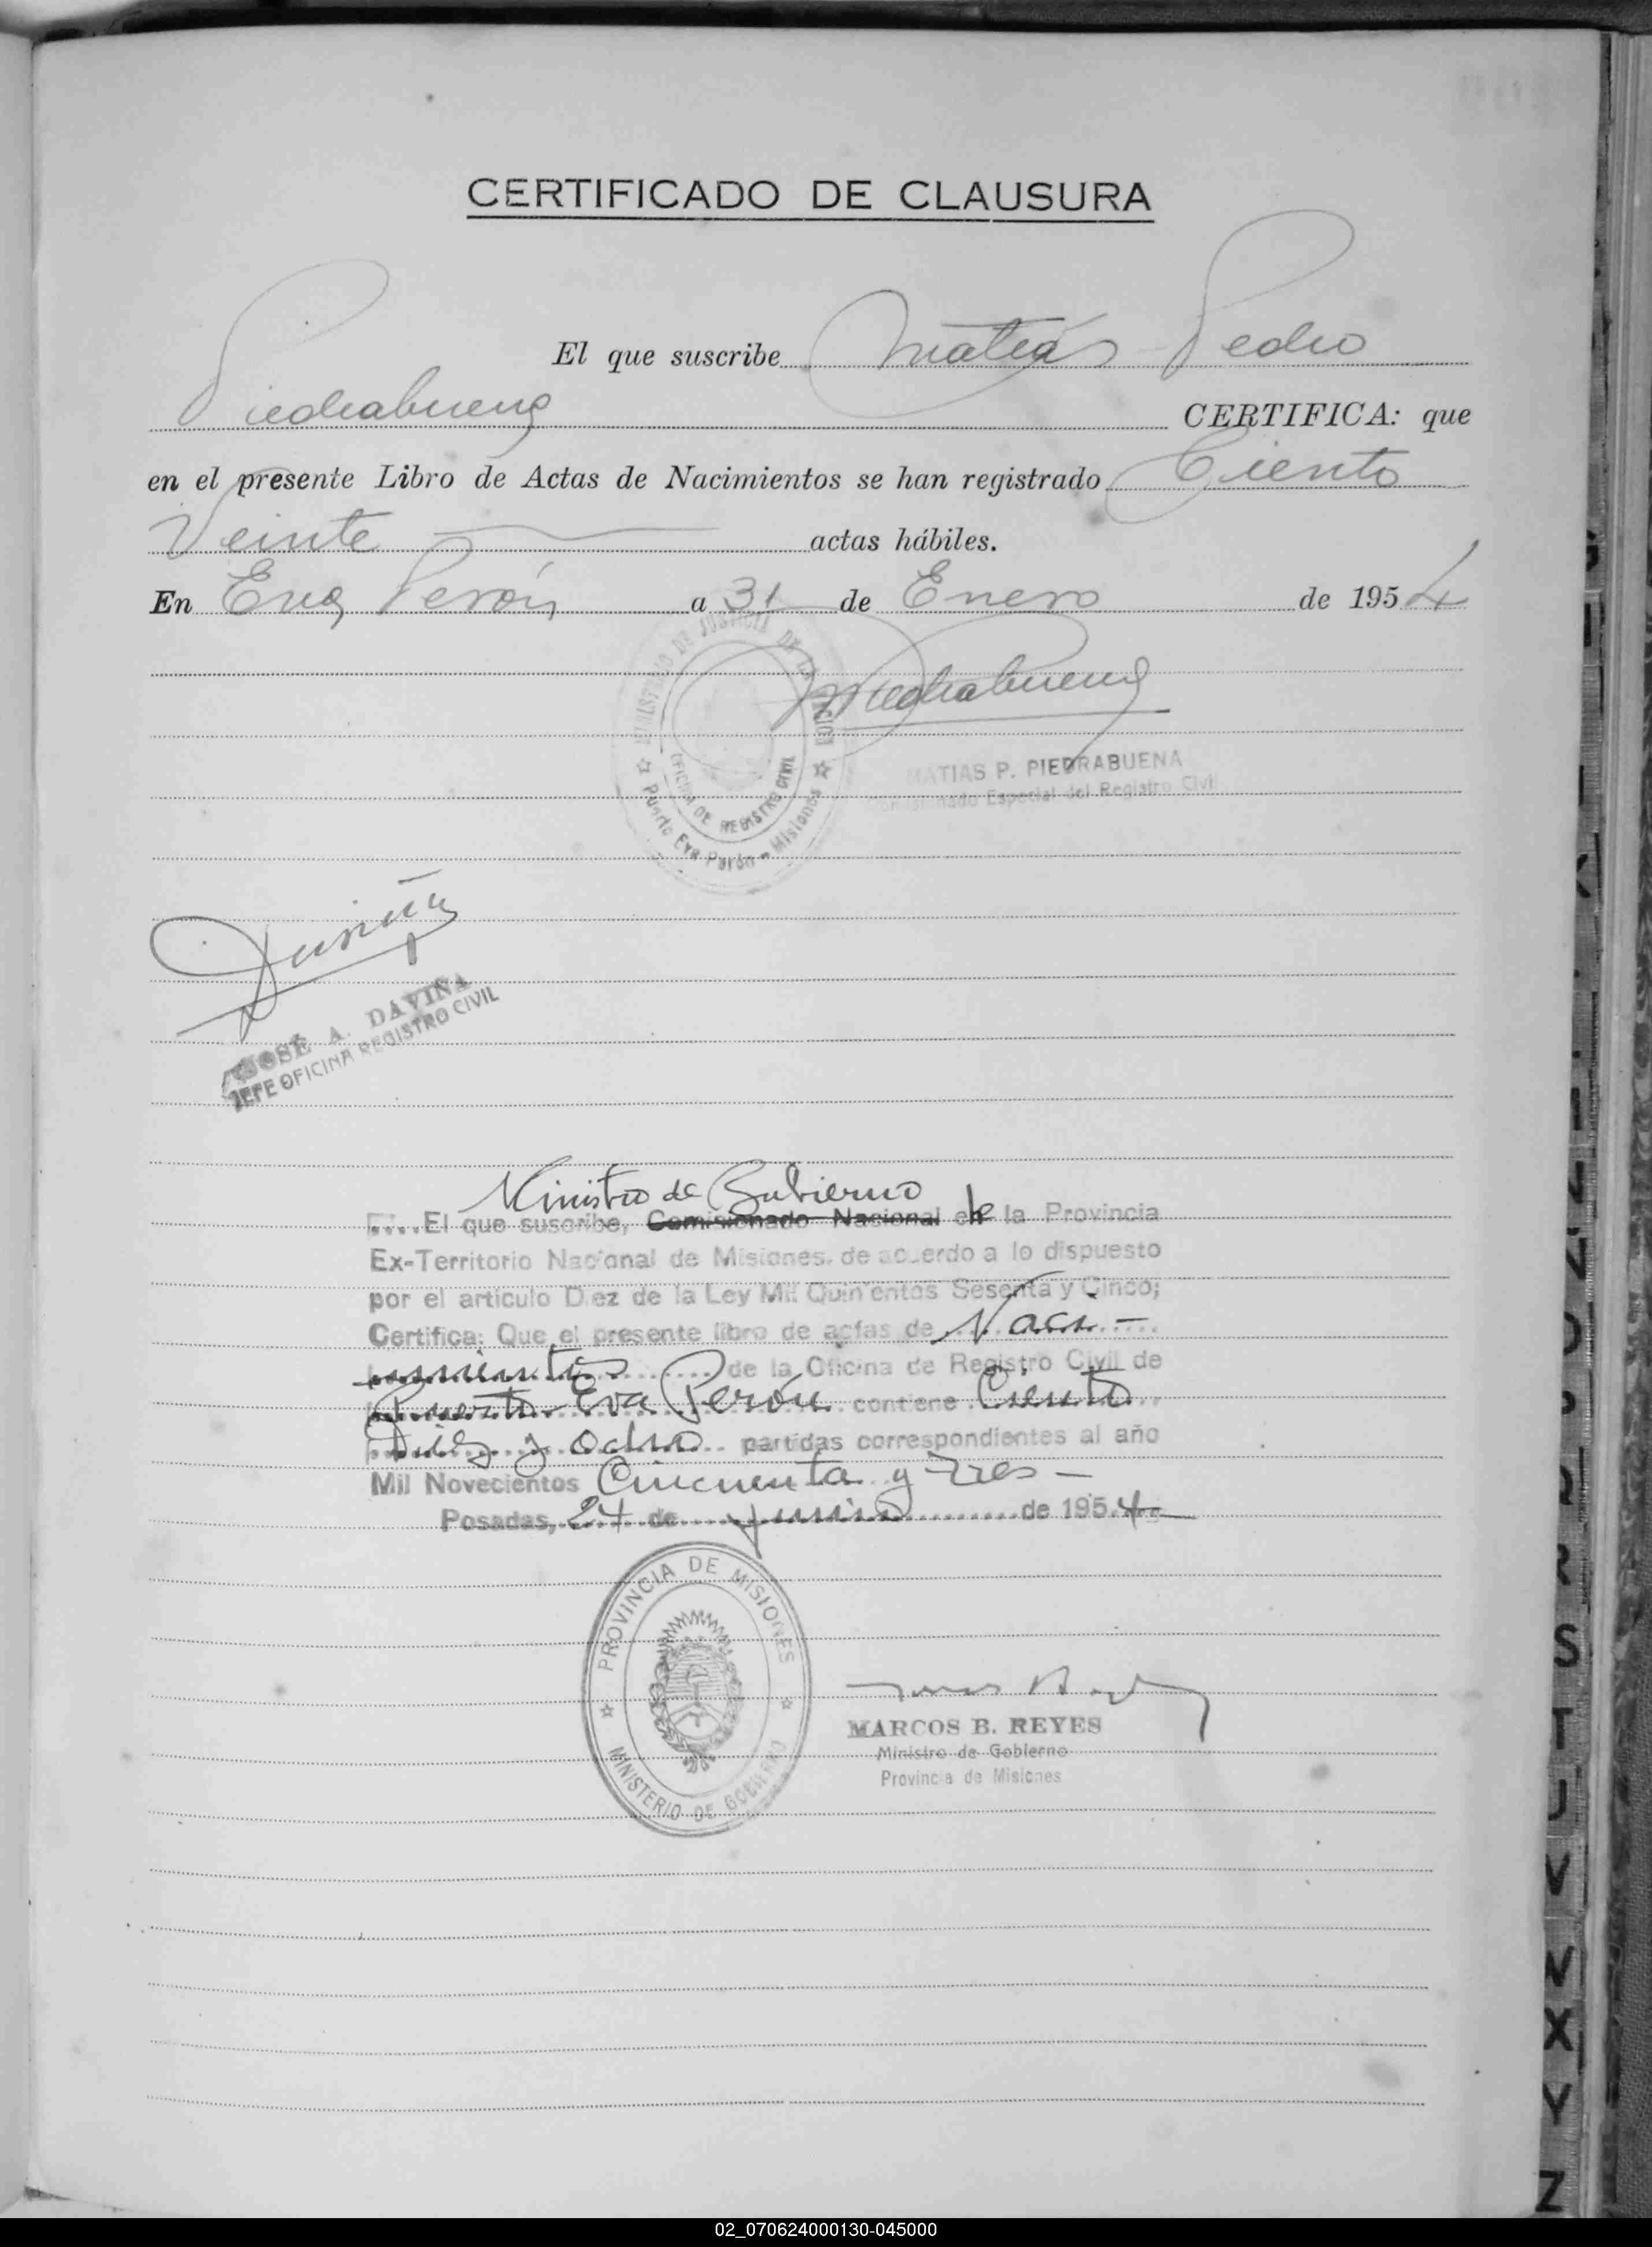 CERTIFICADO DE CLAUSURA
El que suscribe Matías Pedro
Piedrabuena CERTIFICA: que
en el presente Libro de Actas de Nacimientos se han registrado Ciento
Veinte actas hábiles.
En Eva Perón a 31 de Enero de 1954
MINISTERIO DE JUSTICIA DE LA NACION
OFICINA DE REGISTRO CIVIL
Puerto Eva Perón - Misiones
MPiedrabuena
MATIAS P. PIEDRABUENA
Comisionado Especial del Registro Civil
Daviña
JOSE A. DAVIÑA
JEFE OFICINA REGISTRO CIVIL
Ministro de Gobierno
El que suscribe, Comisionado Nacional en de la Provincia
Ex-Territorio Nacional de Misiones, de acuerdo a lo dispuesto
por el artículo Diez de la Ley Mil Quinientos Sesenta y Cinco;
Certifica: Que el presente libro de actas de Naci-
mientos de la Oficina de Registro Civil de
Puerto Eva Perón contiene Ciento
Diez y ocho partidas correspondientes al año
Mil Novecientos Cincuenta y Tres -
Posadas, 24 de junio de 1954
PROVINCIA DE MISIONES
MINISTERIO DE GOBIERNO
MARCOS B. REYES
Ministro de Gobierno
Provincia de Misiones
S
T
U
V
W
X
Y
Z
02_070624000130-045000